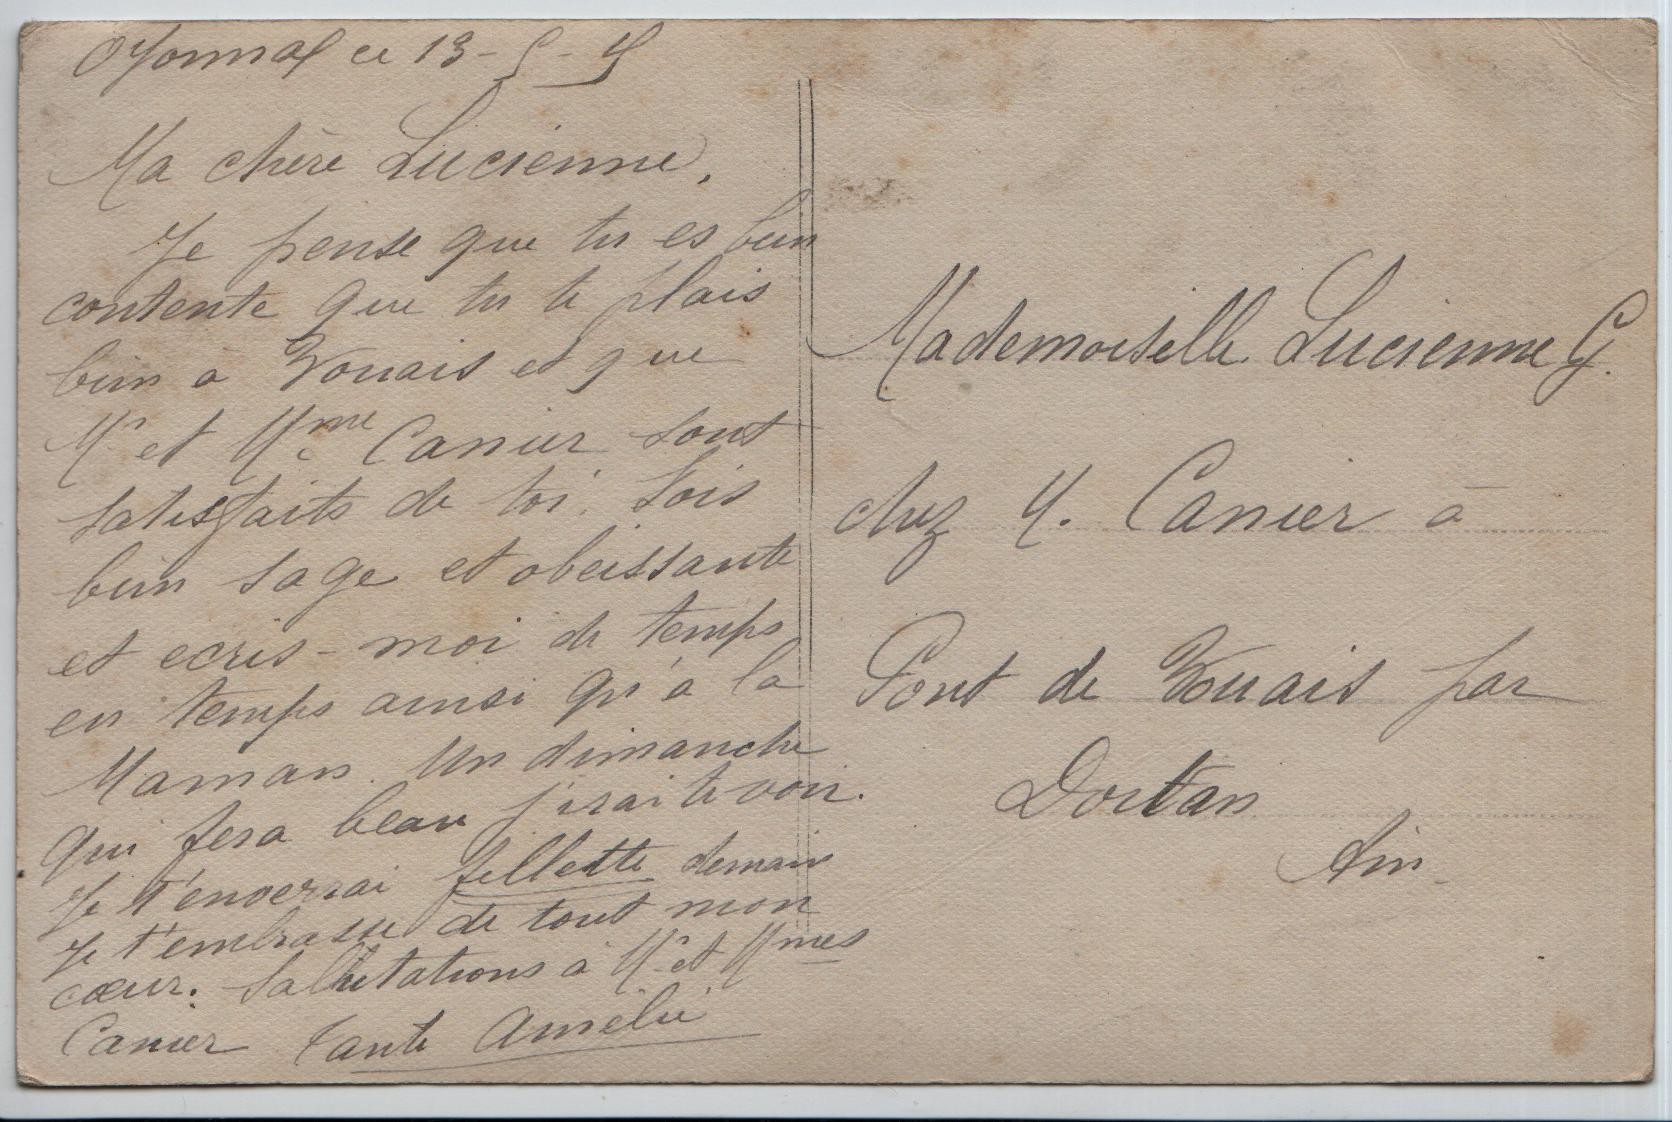 Oyonnax ce 13-5-
Ma chère Lucienne,
Je pense que tu es bien
contente que tu te plais
bien à Vouais et que
Mr et Mme Canier sont
satisfaits de toi. Sois
bien sage et obeissante
et ecris-moi de temps
en temps ainsi qu'à la
Maman. Un dimanche
qui fera beau j'irai te voir.
Je t'enverrai fillette demain
Je t'embrasse de tout mon
cœur. Salutations à Mr et Mmes
Canier Tante Amélie
Mademoiselle Lucienne G.
chez M. Canier à
Pont de Vouais par
Dortan
Ain